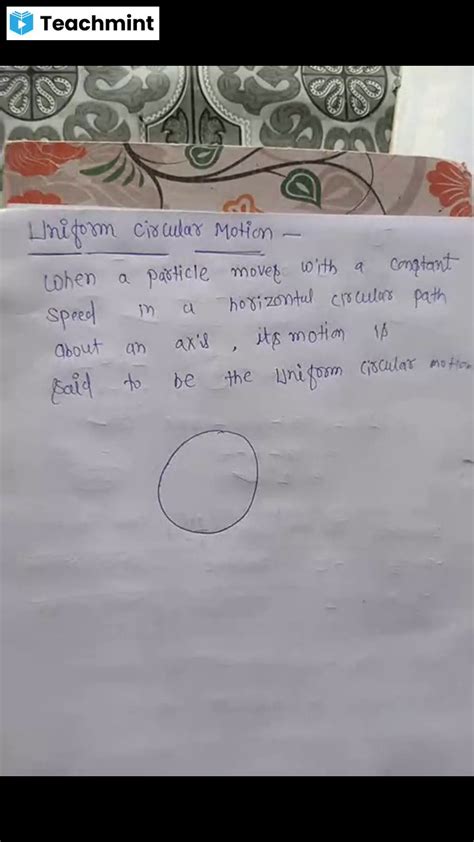 Teachmint
Uniform Circular Motion —
When a particle moves with a constant
speed in a horizontal circular path
about an axis, its motion is
said to be the Uniform circular motion